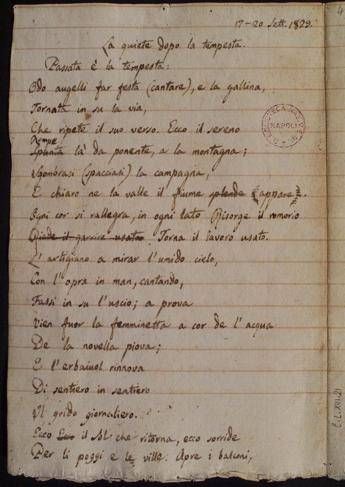 17-20 Sett. 1829.
La quiete dopo la tempesta.
Passata è la tempesta:
Odo augelli far festa (cantare), e la gallina,
Tornata in su la via,
Che ripete il suo verso. Ecco il sereno
Rompe
Spunta là da ponente, a la montagna;
Sgombrasi (spacciasi) la campagna,
E chiaro ne la valle il fiume splende appare.
Ogni cor si rallegra, in ogni lato Risorge il romorio
Torna il lavoro usato.
L'artigiano a mirar l'umido cielo,
Con l'opra in man, cantando,
Fassi in su l'uscio; a prova
Vien fuor la femminetta a cor de l'acqua
De la novella piova;
E l'erbaiuol rinnova
Di sentiero in sentiero
Il grido giornaliero.
Ecco il Sol che ritorna, ecco sorride
Per li poggi e le ville. Apre i balconi,
NAPOLI